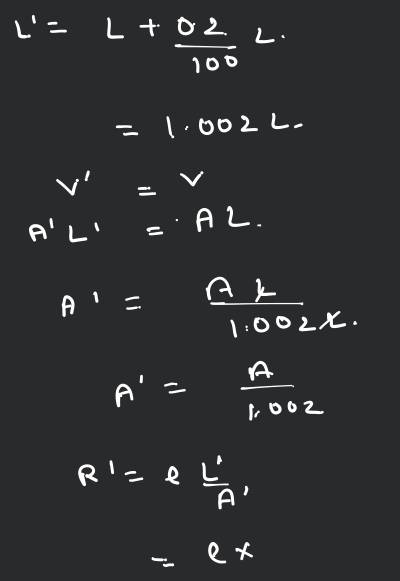 L' = L + 02/100 L.
= 1.002 L.
V' = V
A' L' = A L.
A' = A L / 1.002 L.
A' = A / 1.002
R' = e L'/A'
= e x